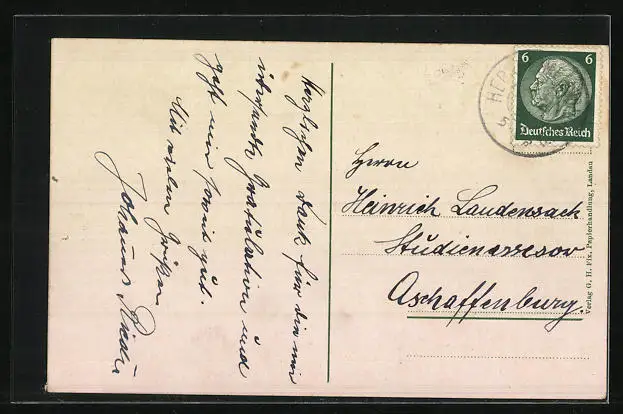 Herzlichen Dank für die mir
erwiesene Gratulation und
geht mir soweit gut.
Mit vielen Grüßen
Johannes
6 6
Deutsches Reich
HER
Herrn
Heinrich Laudensack
Studienassessor
Aschaffenburg.
Verlag G. H. Fix, Papierhandlung, Landau